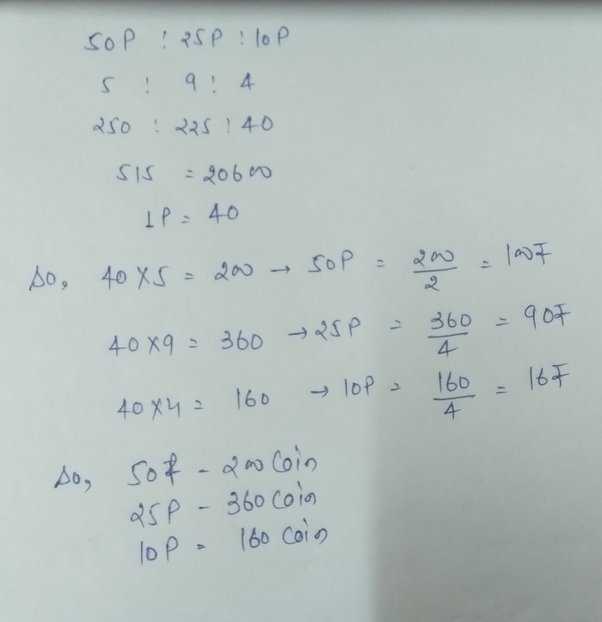 50P : 25P : 10P
5 : 9 : 4
250 : 225 : 40
515 = 20600
1P = 40
So, 40 × 5 = 200 → 50P = 200/2 = 100₹
40 × 9 = 360 → 25P = 360/4 = 90₹
40 × 4 = 160 → 10P = 160/4 = 16₹
So, 50₹ - 200 Coin
25P - 360 Coin
10P - 160 Coin